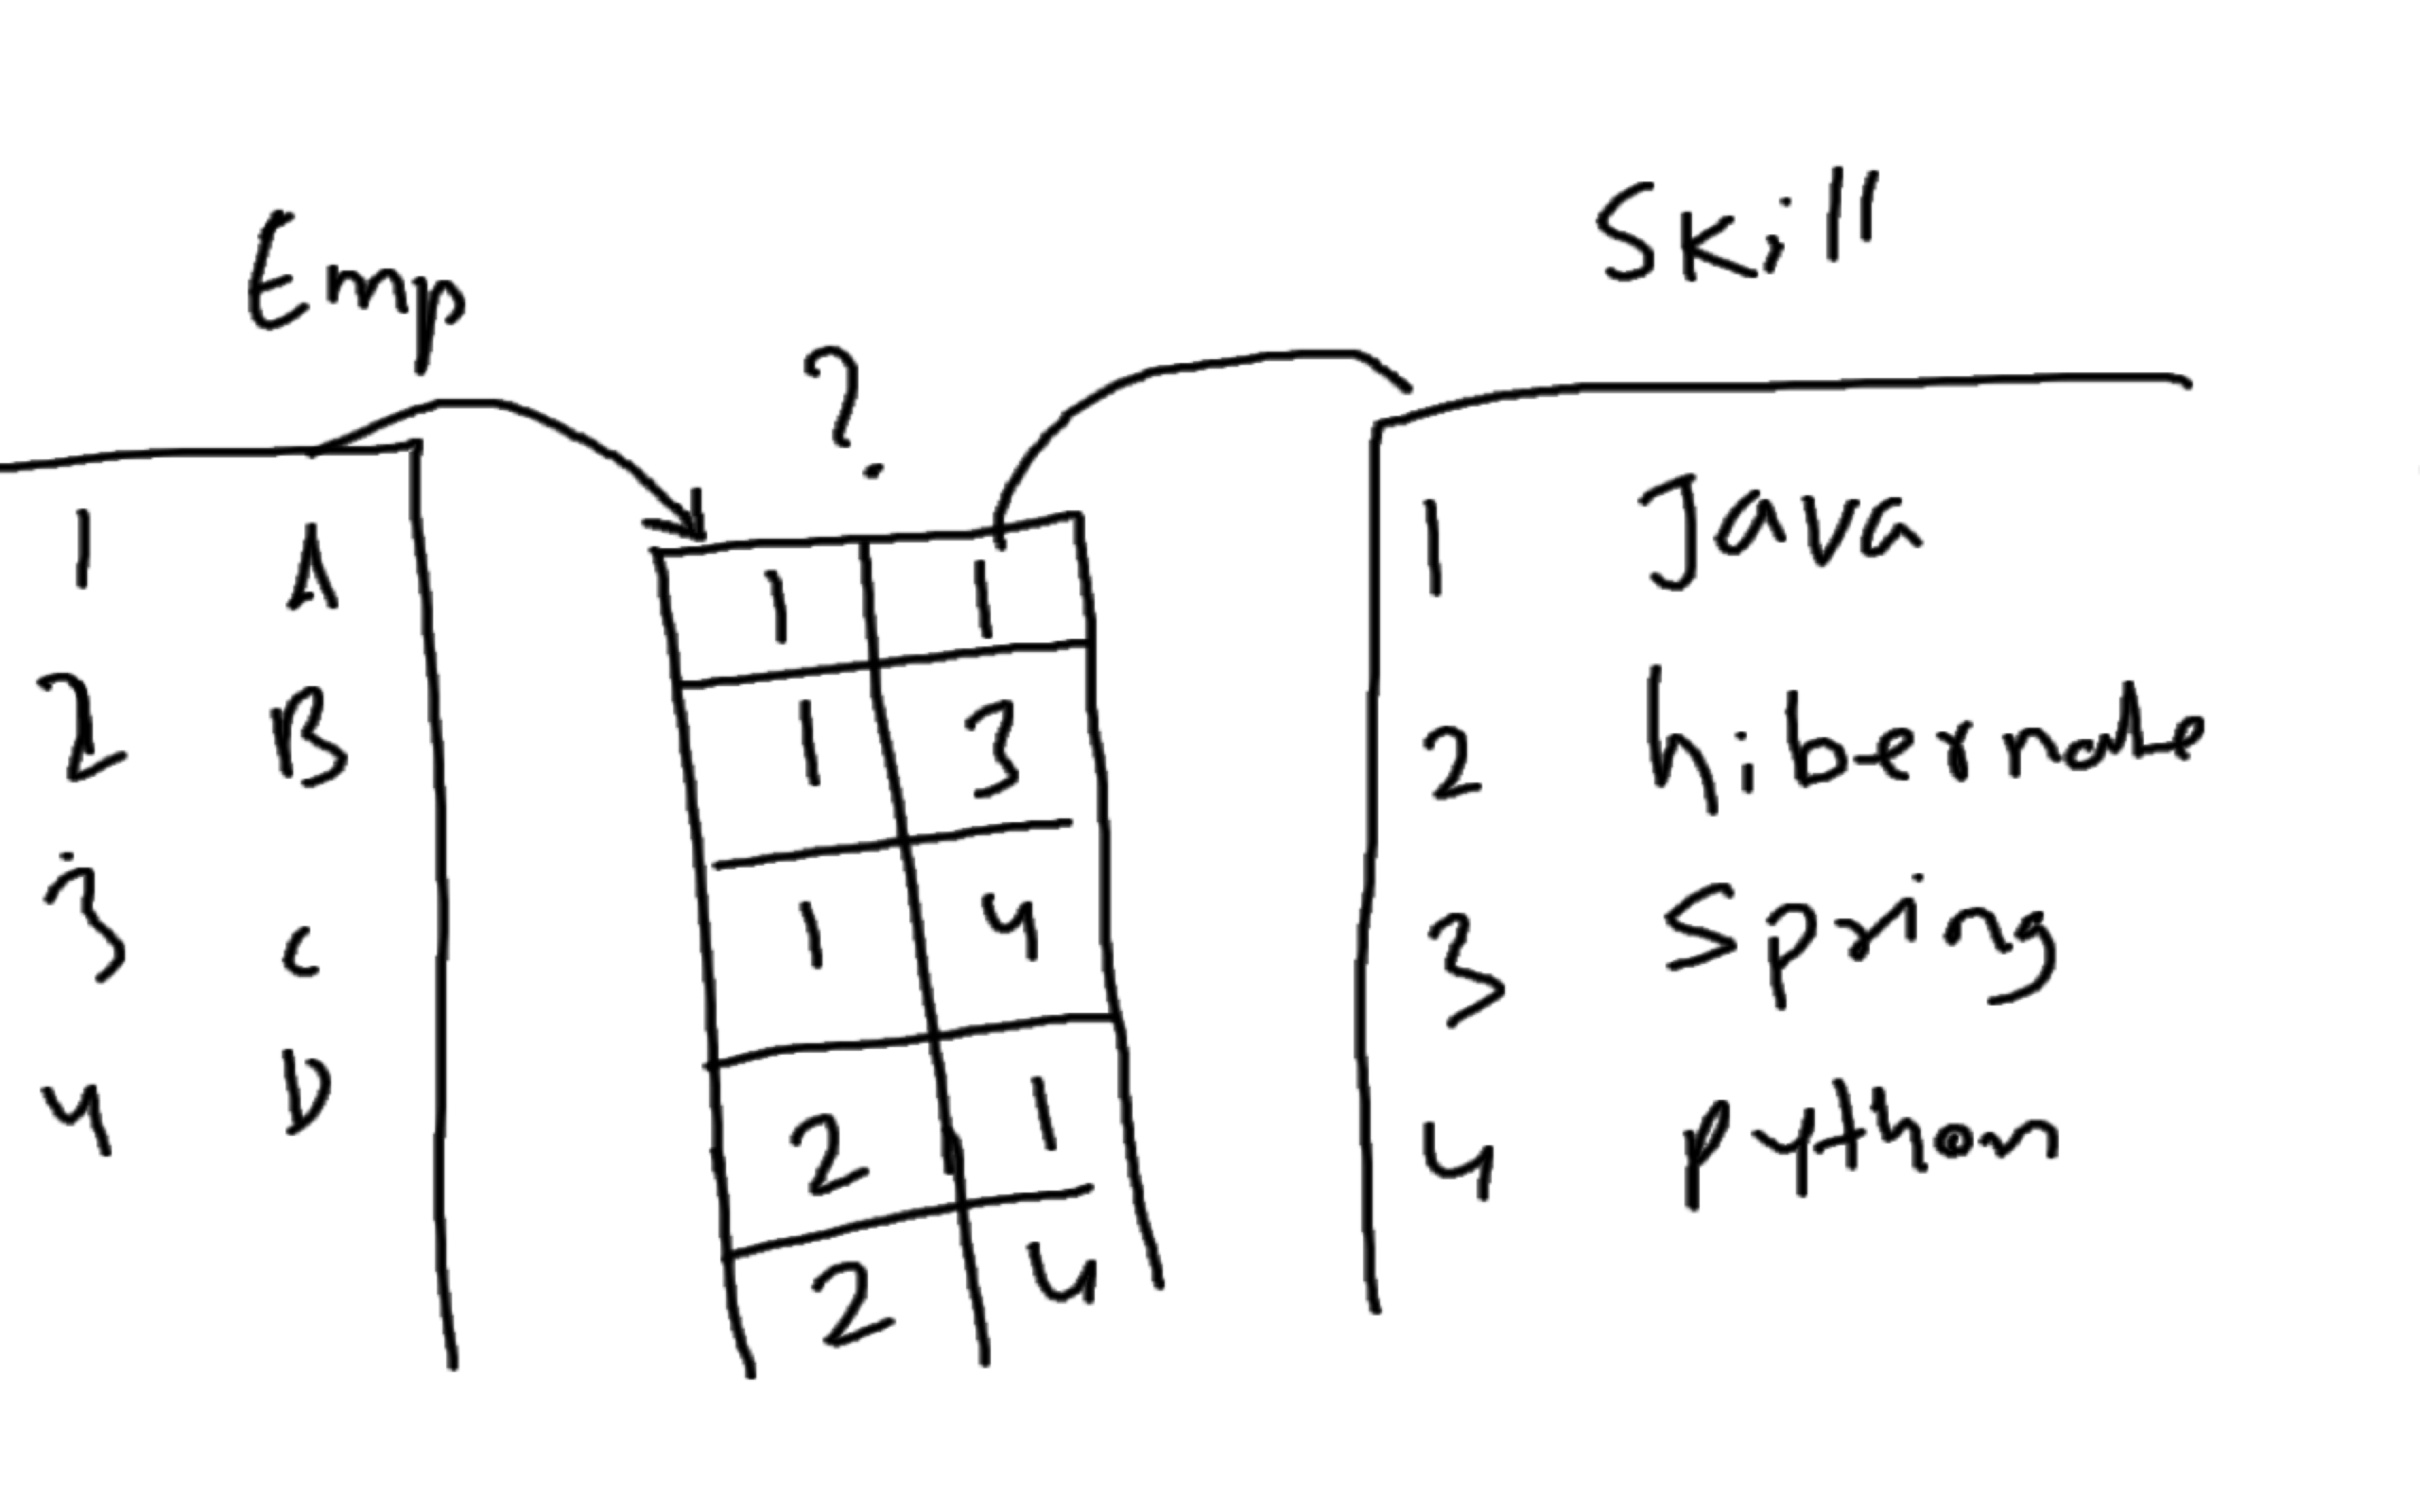 Emp
?
Skill
1 A
2 B
3 c
4 D
1 1
1 3
1 4
2 1
2 4
1 Java
2 hibernate
3 Spring
4 python